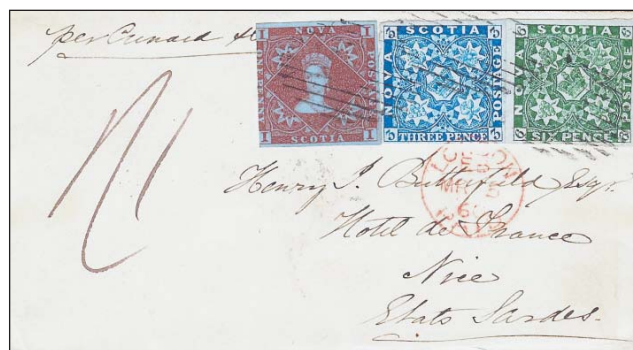 per Cunard
NOVA
SCOTIA
POSTAGE
I I I I
NOVA SCOTIA POSTAGE
THREE PENCE
3 3 3 3
NOVA SCOTIA POSTAGE
SIX PENCE
6 6 6 6
LONDON
Henry J. Butterfield Esqr.
Hotel de France
Nice
Etats Sardes.